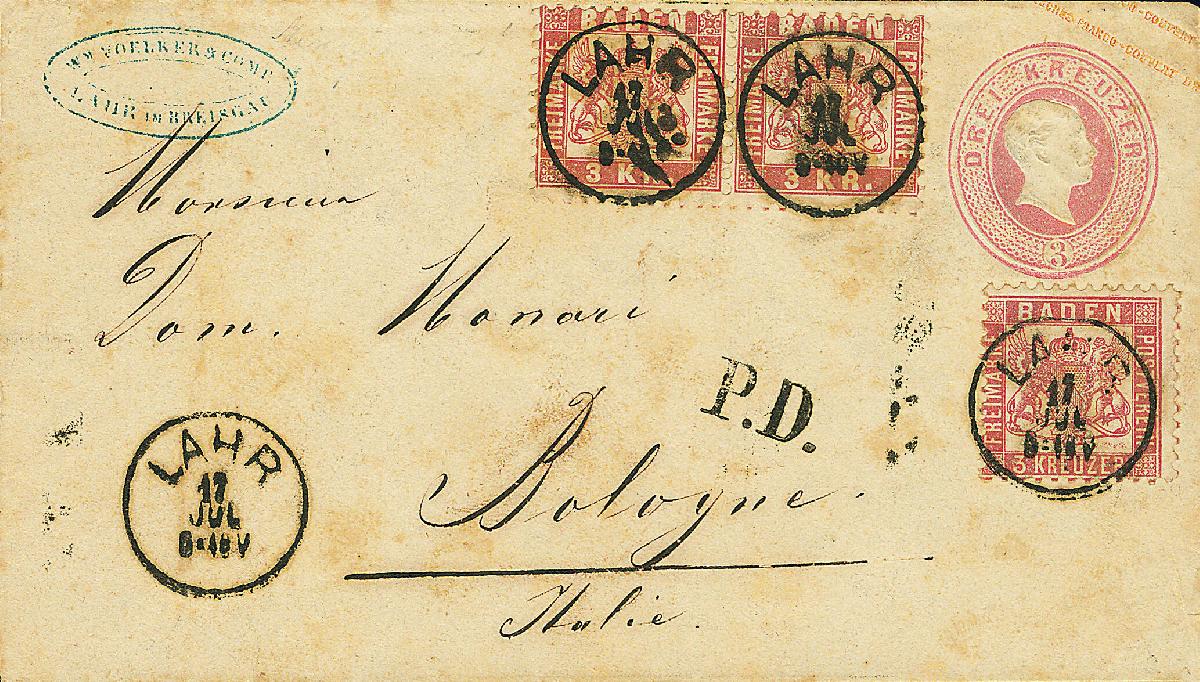 WM. VOELKER & COMP.
LAHR IM BREISGAU
BADEN
FREIMARKE
3 KR.
LAHR
17
JUL
BADEN
FREIMARKE
3 KR.
LAHR
17
JUL
8-10V
DREI KREUZER
3
FRANCO-COUVERT
Monsieur
Dom. Monari
P.D.
BADEN
FREIMARKE
POSTVEREIN
3 KREUZER
LAHR
17
JUL
8-10V
LAHR
17
JUL
8-10V
Bologne.
Italie.